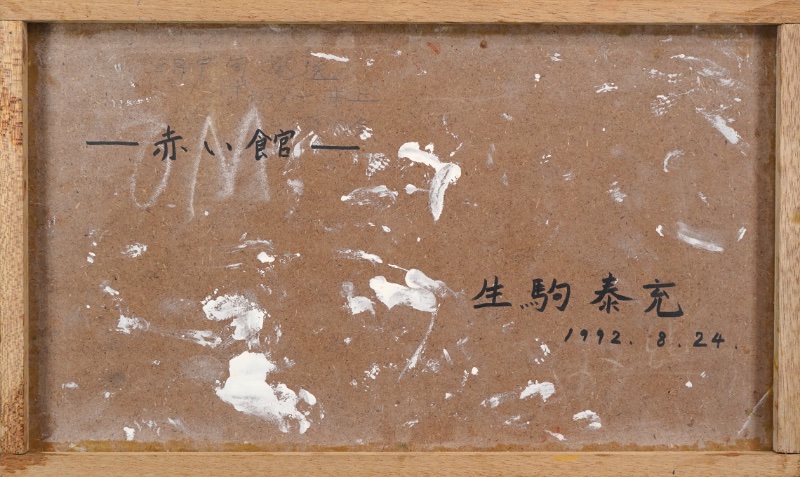 — 赤い館 —
生駒泰充
1992. 8. 24.